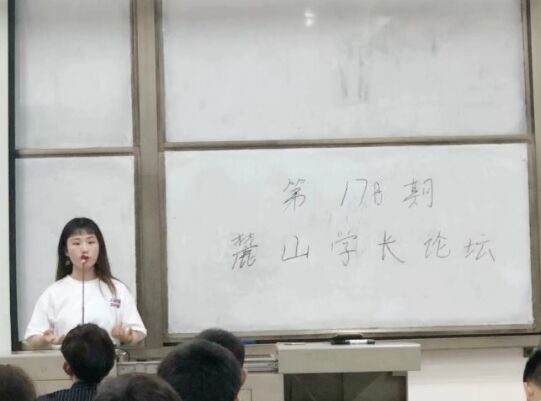 第178期
麓山学长论坛